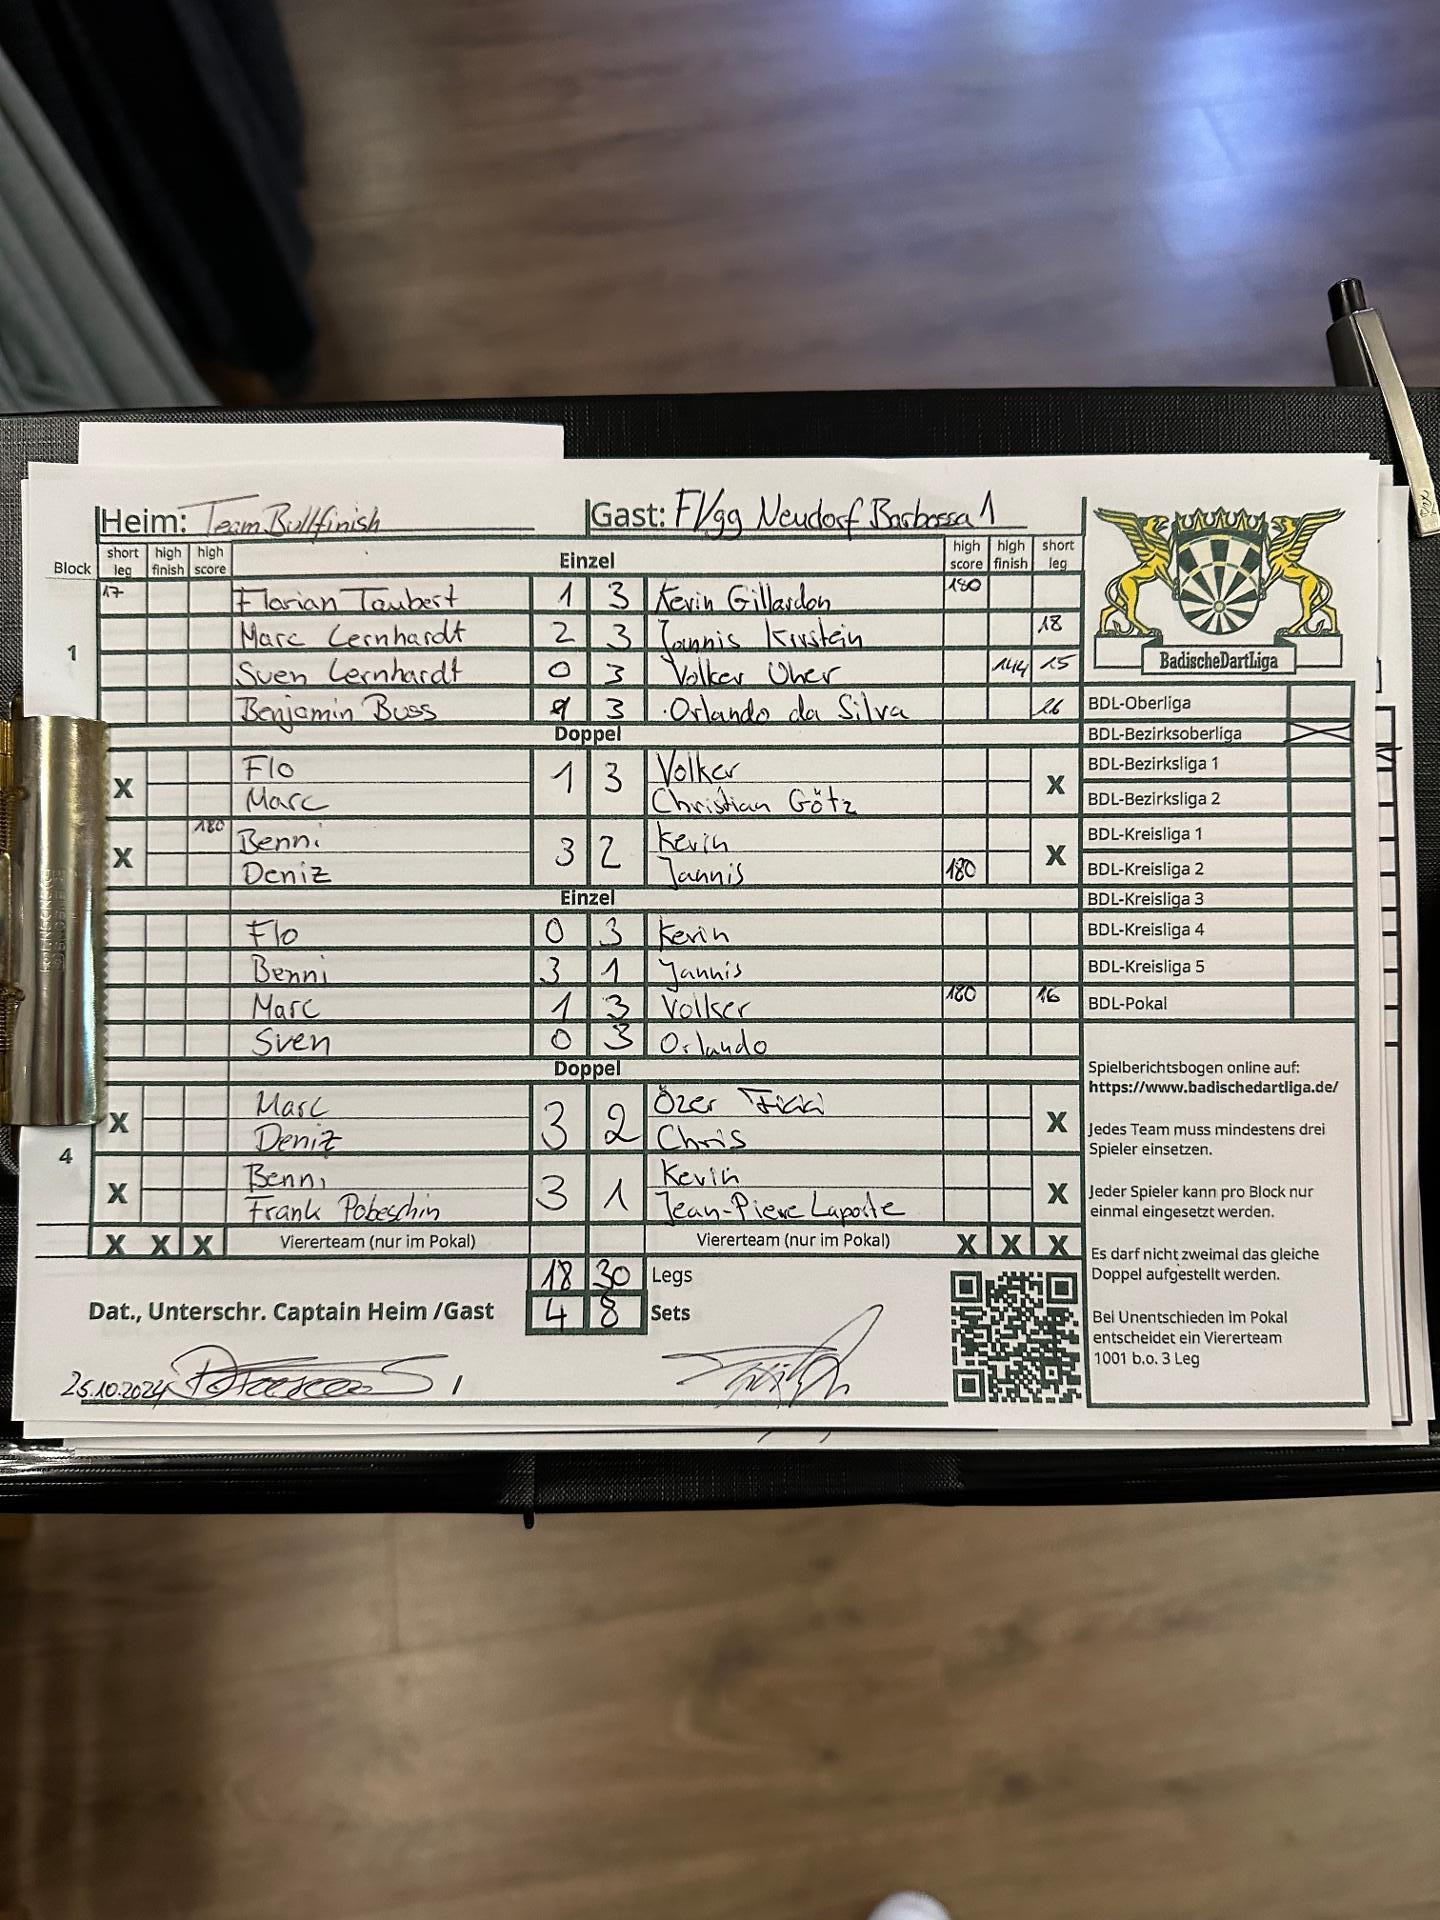 Heim: Team Bullfinish Gast: FVgg Neudorf Barbossa 1
Block short leg high finish high score Einzel high score high finish short leg
17 Florian Taubert 1 3 Kevin Gillardon 180
Marc Lernhardt 2 3 Jannis Kirstein 18
1
Sven Lernhardt 0 3 Volker Uher 144 15
Benjamin Buss 3 Orlando da Silva
BadischeDartLiga
Doppel
Flo 1 3 Volker
X X
Marc Christian Götz
180 Benni 3 2 Kevin
X X
Deniz Jannis 180
Einzel
Flo 0 3 Kevin
Benni 3 1 Jannis
Marc 1 3 Volker 180 16
Sven 0 3 Orlando
Doppel
Marc 3 2 Özer
X X
Deniz Chris
4
Benni 3 1 Kevin
X X
Frank Pobeschin Jean-Piere Laporte
X X X Viererteam (nur im Pokal) Viererteam (nur im Pokal) X X X
18 30 Legs
Dat., Unterschr. Captain Heim /Gast 4 8 Sets
25.10.2024 /
BDL-Oberliga
BDL-Bezirksoberliga X
BDL-Bezirksliga 1
BDL-Bezirksliga 2
BDL-Kreisliga 1
BDL-Kreisliga 2
BDL-Kreisliga 3
BDL-Kreisliga 4
BDL-Kreisliga 5
BDL-Pokal
Spielberichtsbogen online auf:
https://www.badischedartliga.de/
Jedes Team muss mindestens drei
Spieler einsetzen.
Jeder Spieler kann pro Block nur
einmal eingesetzt werden.
Es darf nicht zweimal das gleiche
Doppel aufgestellt werden.
Bei Unentschieden im Pokal
entscheidet ein Viererteam
1001 b.o. 3 Leg